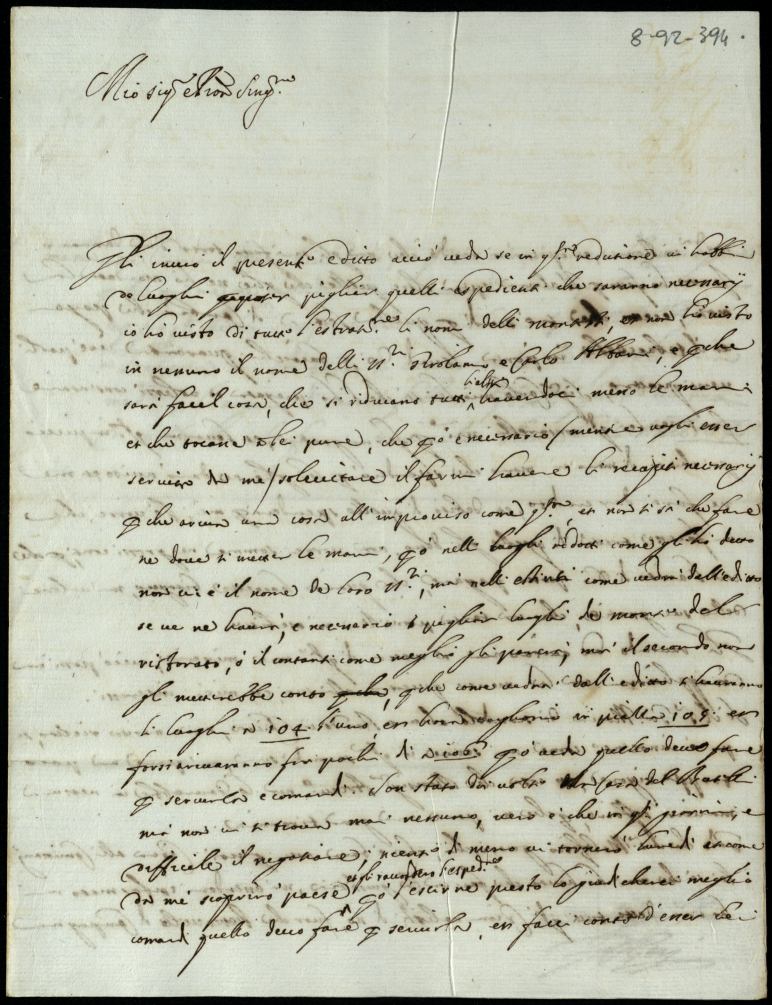 8-92-394.
Mio sigr e Pron Singmo
Gli invio il presente editto acciò veda se in qsta redutione vi habbi
de luoghi pigliar quelli espedienti che saranno necessarij
io ho visto di tutti l'estratne li nomi delli montisti, et non ho visto
in nessuno il nome delli SSri Girolamo e Carlo Albani, e pche
sarà facil cosa, che si riducano tutti havendoci messo le mani
et che tocasse a lei pure, che pò è necessario /mentre vogli esser
servito da me/ sollecitare il farmi havere li recapiti necessarij
pche arriva una cosa all'improviso come qsta, et non si sà che fare
ne dove si metter le mani, pò nelli luoghi ridotti come gli hò detto
non vi è il nome de loro SSri, mà nelli estinti come vedrà dall'editto
se ve ne haurà, è necessario pigliar luoghi de monti del
ristorato, ò il contanti come meglio gli parerà, mà il secondo non
gli metterebbe conto, pche come vedrà dall'editto si hauranno
li luoghi a 104 l'uno, et hora vogliono in quelli 105 et
forsi arivaranno fra pochi dì a 106 pò veda quello devo fare
p servirla e comandi. Son stato doi volte in Casa del
mà non vi si trova mai nessuno, vero è che in qsti giorni, è
difficile il negotiare, nienti di meno vi tornerò lunedì et come
da me scoprirò paese pò l'escirne presto lo giudicherei meglio
comandi quello devo fare p servirla, et facci conto d'esser lei